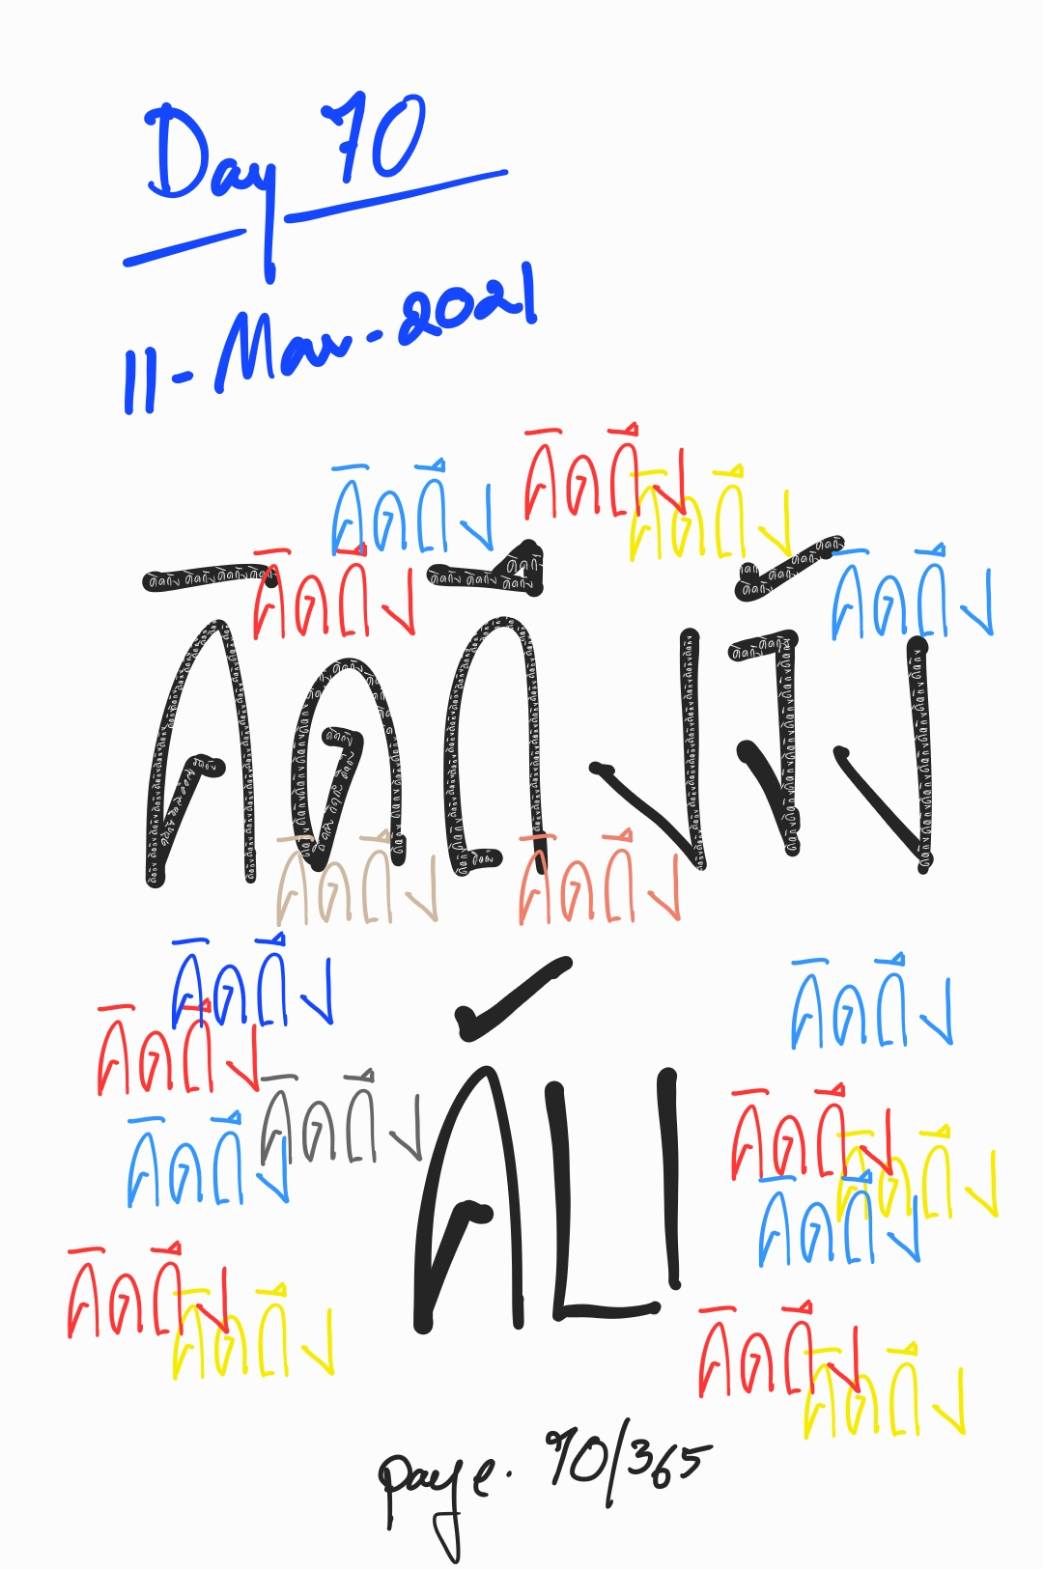 Day 70
11-Mar-2021
คิดถึง
คิดถึง
คิดถึง
คิดถึง
คิดถึง
คิดถึงจัง
คิดถึง
คิดถึง
คิดถึง
คิดถึง
คิดถึง
คิดถึง
คับ
คิดถึง
คิดถึง
คิดถึง
คิดถึง
คิดถึง
คิดถึง
คิดถึง
คิดถึง
page. 70/365